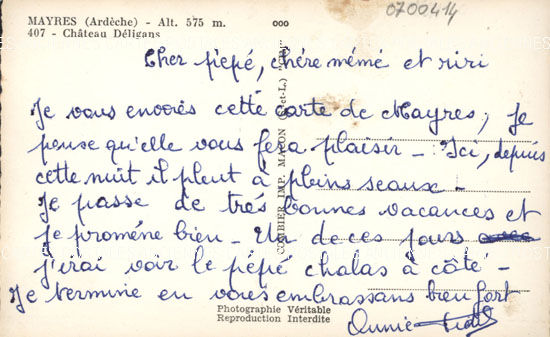 MAYRES (Ardèche) - Alt. 575 m.
407 - Château Déligans
0700414
Cher pépé, chère mémé et riri
Je vous envoies cette carte de Mayres, Je
pense qu'elle vous fera plaisir - Ici, depuis
cette nuit il pleut à pleins seaux -
Je passe de trés bonnes vacances et
je proméne bien - Un de ces jours
j'irai voir le pépé chalas à côté -
Je termine en vous embrassans bien fort
Annie
COMBIER IMP. MACON (S.-et-L.)
Photographie Véritable
Reproduction Interdite